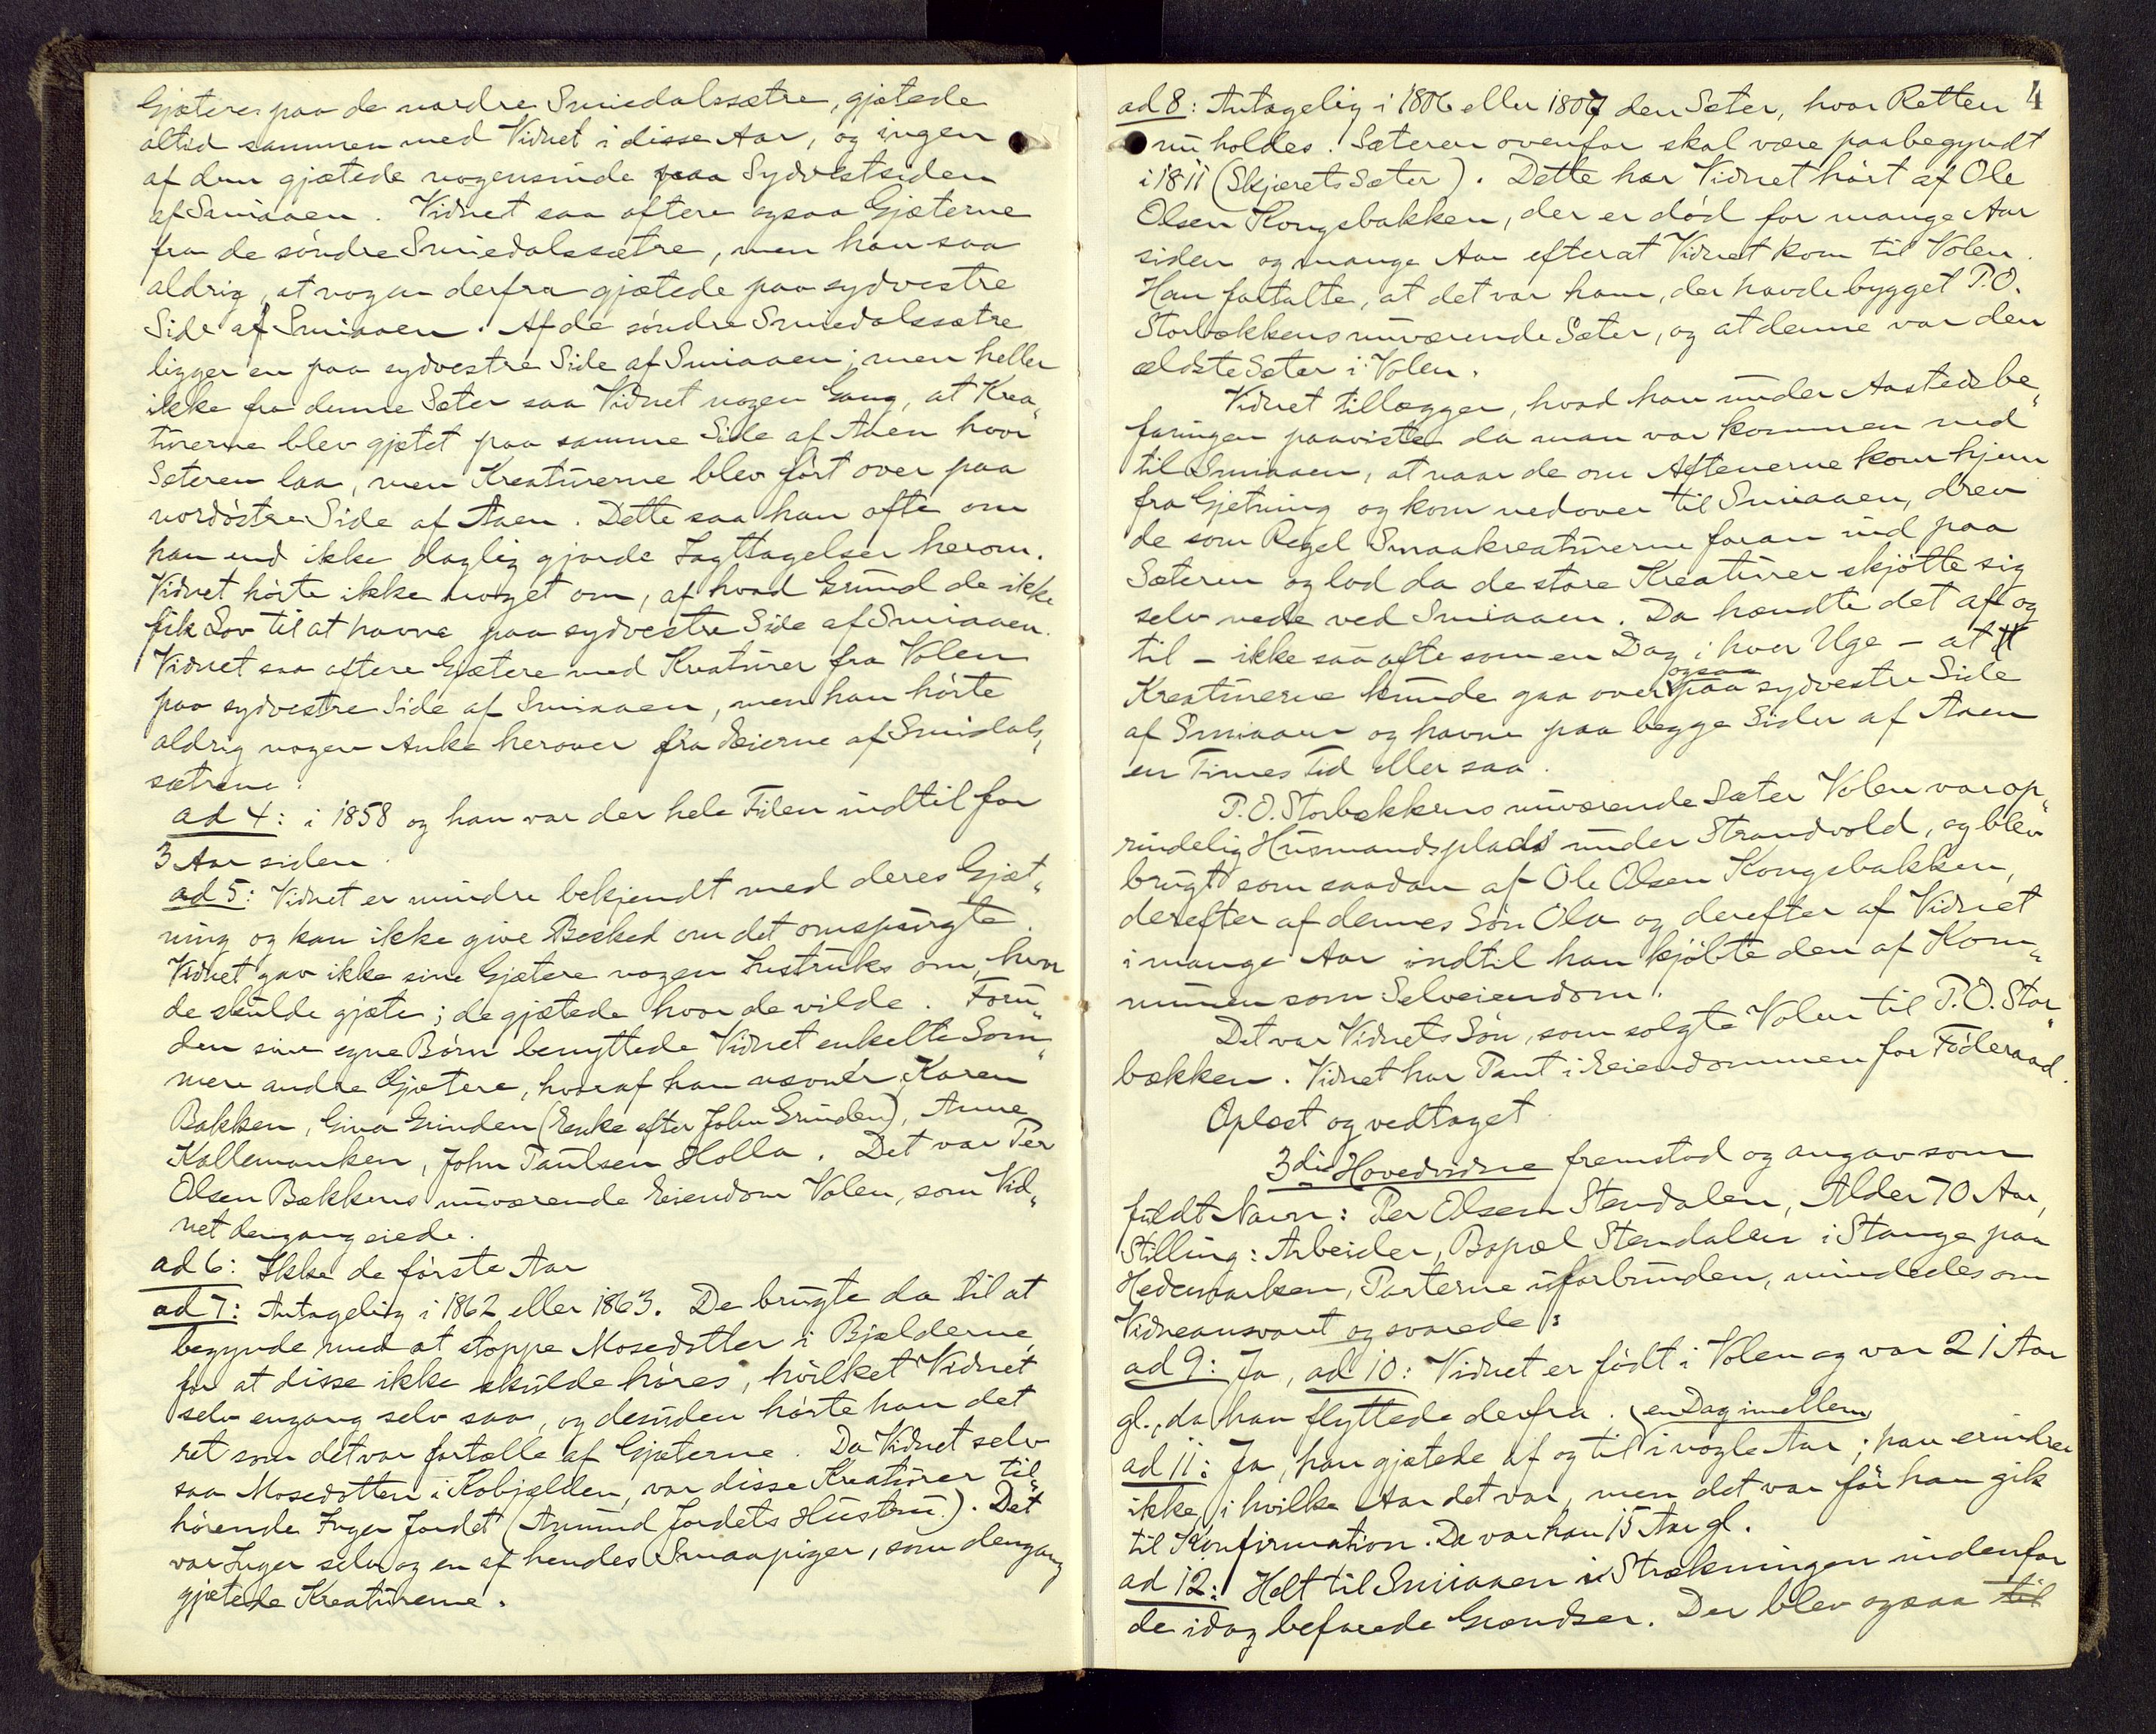 Gjætere paa de nordre Smiedalssætre, gjætede
altid sammen med Vidnet i disse Aar, og ingen
af dem gjætede nogensinde paa Sydvestsiden
af Smiaaen. Vidnet saa oftere ogsaa Gjæterne
fra de söndre Smiedalssætre, men han saa
aldrig, at nogen derfra gjætede paa sydvestre
Side af Smiaaen. Af de söndre Smiedalssætre
ligger en paa sydvestre Side af Smiaaen; men heller
ikke fra denne Sæter saa Vidnet nogen Gang, at Krea„
turerne blev gjætet paa samme Side af Aaen hvor
Sæteren laa, men Kreaturerne blev fört over paa
nordöstre Side af Aaen. Dette saa han ofte om
han end ikke daglig gjorde Iagttagelser herom.
Vidnet hörte ikke noget om, af hvad Grund de ikke
fik Lov til at havne paa sydvestre Side af Smiaaen.
Vidnet saa oftere Gjætere med Kreaturer fra Volen
paa sydvestre Side af Smiaaen, men han hörte
aldrig nogen Anke herover fra Eierne af Smidals„
sætrene.
ad 4: i 1858 og han var der hele Tiden indtil for
3 Aar siden.
ad 5: Vidnet er mindre bekjendt med deres Gjæt„
ning og kan ikke give Besked om det omspurgte.
Vidnet gav ikke sine Gjætere nogen Instruks om, hvor
de skulde gjæte; de gjætede hvor de vilde. Foru„
den sine egne Börn benyttede Vidnet enkelte Som„
mere andre Gjætere, hvoraf han nævner Karen
Bakken, Gina Grinden (Enke efter John Grinden), Anne
Kallemanken, John Paulsen Holla. Det var Per
Olsen Bækkens nuværende Eiendom Volen, som Vid„
net dengang eiede.
ad 6: Ikke de förste Aar
ad 7: Antagelig i 1862 eller 1863. De brugte da til at
begynde med at stoppe Mosedotter i Bjælderne,
for at disse ikke skulde höres, hvilket Vidnet
selv engang selv saa, og desuden hörte han det
ret som det var fortælle af Gjæterne. Da Vidnet selv
saa Mosedotten i Kobjælden, var disse Kreaturer til„
hörende Inger Jordet (Amund Jordets Hustru). Det
var Inger selv og en af hendes Smaapiger, som dengang
gjætede Kreaturerne.
4
ad 8: Antagelig i 1806 eller 1807 den Sæter, hvor Retten
nu holdes. Sæteren ovenfor skal være paabegyndt
i 1811 (Skjærets Sæter). Dette har Vidnet hört af Ole
Olsen Kongsbakken, der er död for mange Aar
siden og mange Aar efterat Vidnet kom til Volen.
Han fortalte, at det var ham, der havde bygget P.O.
Storbækkens nuværende Sæter, og at denne var den
ældste Sæter i Volen.
Vidnet tillægger, hvad han under Aastedsbe„
faringen paaviste da man var kommen ned
til Smiaaen, at naar de om Aftenerne kom hjem
fra Gjætning og kom nedover til Smiaaen, drev
de som Regel Smaakreaturerne foran ind paa
Sæteren og lod da de store Kreaturer skjötte sig
selv nede ved Smiaaen. Da hændte det af og
til - ikke saa ofte som en Dag i hver Uge - at
ogsaa
Kreaturerne kunde gaa over paa sydvestre Side
af Smiaaen og havne paa begge Sider af Aaen
en Times Tid eller saa.
P.O. Storbækkens nuværende Sæter Volen var op„
rindelig Husmandsplads under Strandvold, og blev
brugt som saadan af Ole Olsen Kongsbakken,
derefter af dennes Sön Ola og derefter af Vidnet
i mange Aar indtil han kjöbte den af Kom„
munen som Selveiendom.
Det var Vidnets Sön, som solgte Volen til P.O. Stor„
bækken. Vidnet har Pant i Eiendommen for Föderaad.
Oplæst og vedtaget.
3die Hovedvidne fremstod og angav som
fuldt Navn: Per Olsen Stendalen, Alder 70 Aar,
Stilling: Arbeider, Bopæl Stendalen i Stange paa
Hedemarken, Parterne uforbunden, mindedes om
Vidneansvaret og svarede:
ad 9: Ja, ad 10: Vidnet er födt i Volen og var 21 Aar
gl., da han flyttede derfra. (en Dag imellem)
ad 11: Ja, han gjætede af og til i nogle Aar; han erindrer
ikke, i hvilke Aar det var, men det var för han gik
til Konfirmation. Da var han 15 Aar gl.
ad 12: Helt til Smiaaen i Strækningen indenfor
de idag befarede Grændser. Der blev ogsaa til